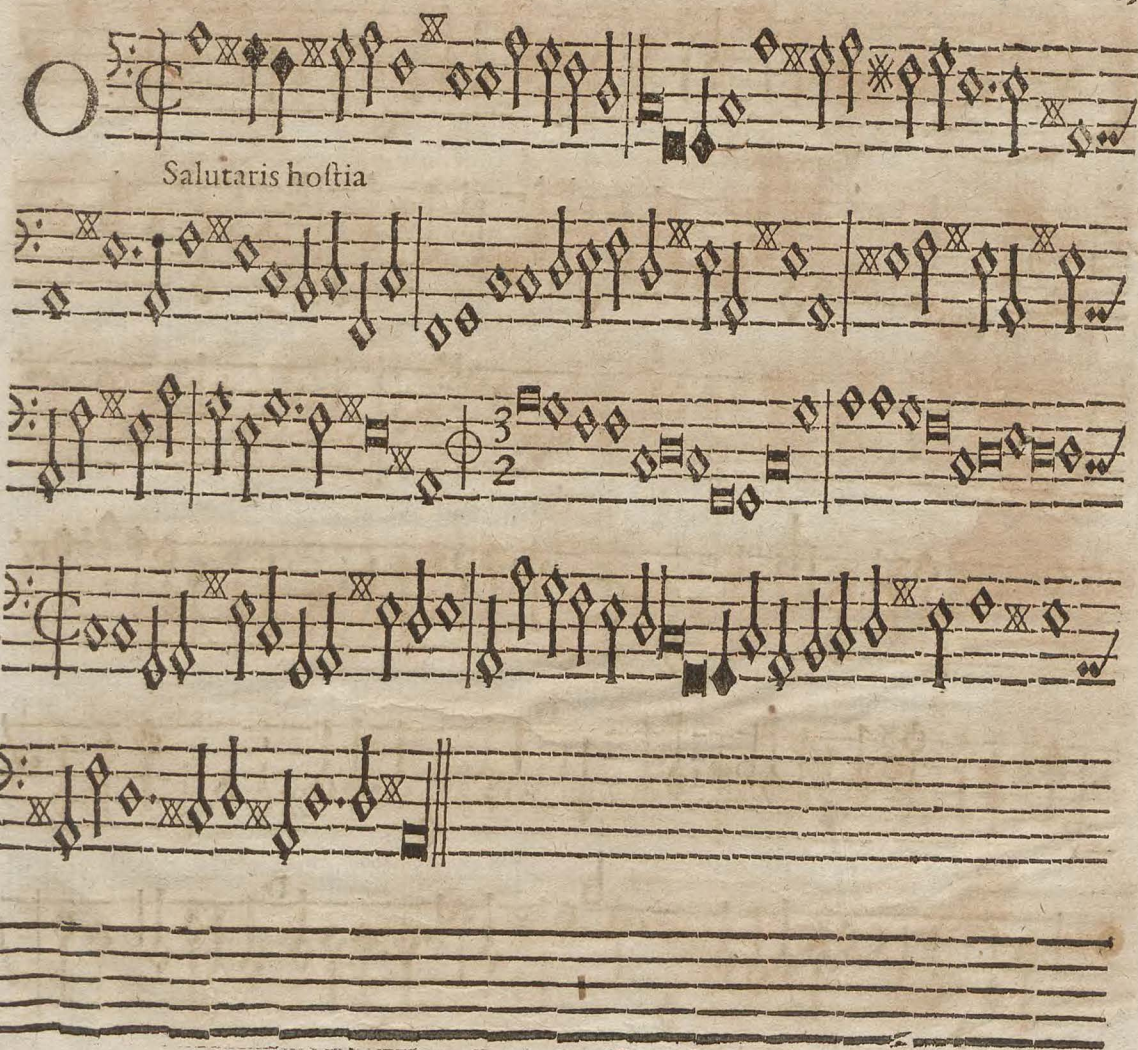 O
Salutaris hoſtia
3
2